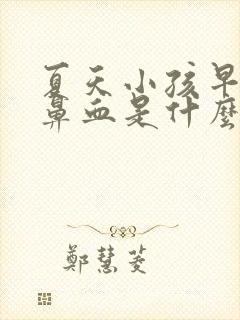 夏天小孩早
鼻血是什麼
鄭慧菱